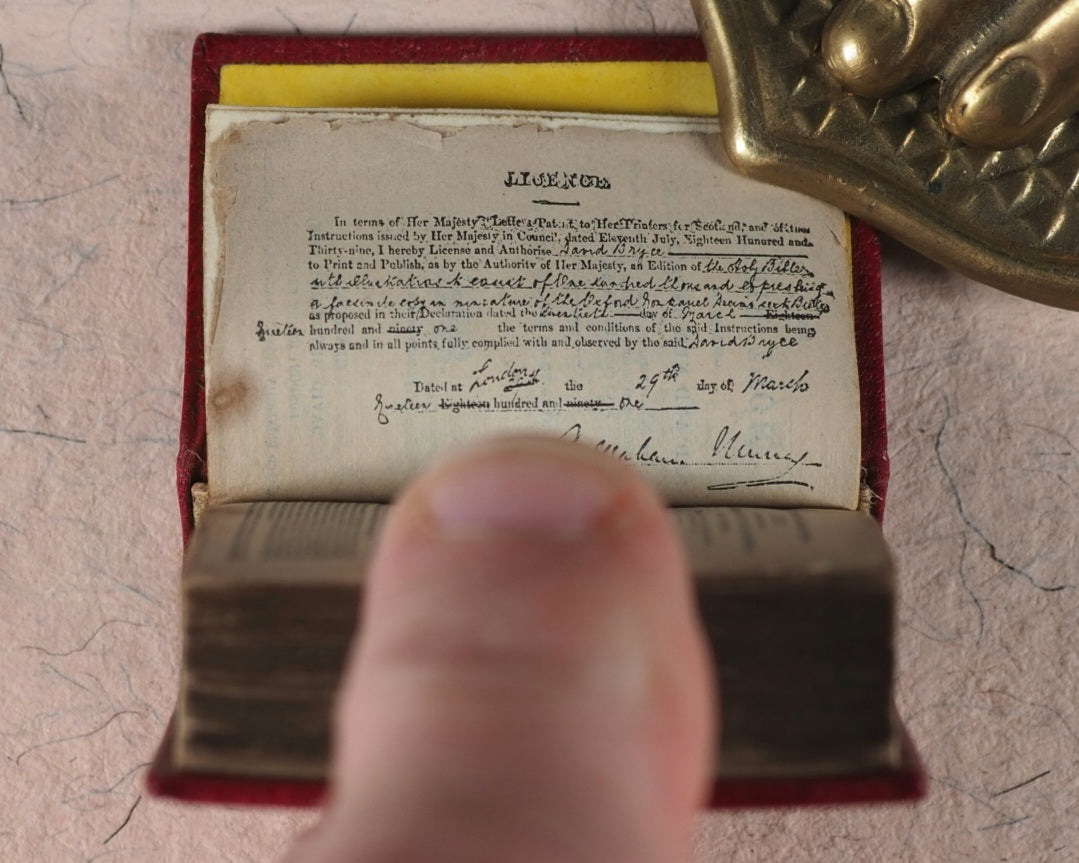 LICENCE
In terms of Her Majesty's Letters Patent to Her Printers for Scotland, and of the
Instructions issued by Her Majesty in Council, dated Eleventh July, Eighteen Hundred and
Thirty-nine, I hereby License and Authorise David Bryce
to Print and Publish, as by the Authority of Her Majesty, an Edition of the Holy Bible
with illustrations to consist of One hundred thousand and
a facsimile copy in miniature of the Oxford
as proposed in their Declaration dated the day of March Eighteen
Nineteen hundred and ninety one the terms and conditions of the said Instructions being
always and in all points fully complied with and observed by the said David Bryce
Dated at London the 29th day of March
Nineteen Eighteen hundred and ninety One
Graham Murray